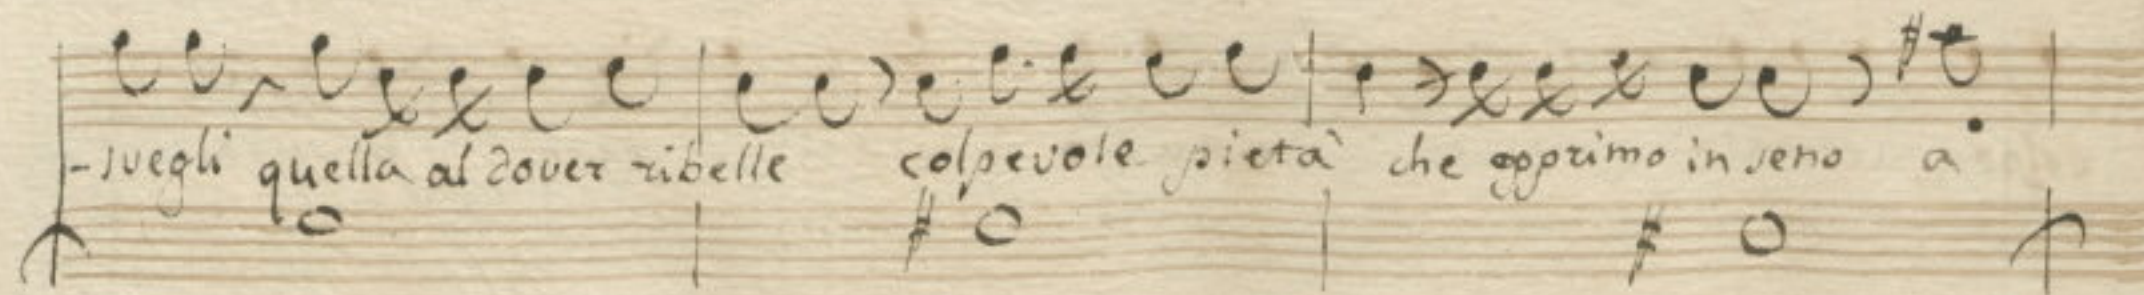 -svegli quella al dover ribelle colpevole pietà che opprimo in seno a